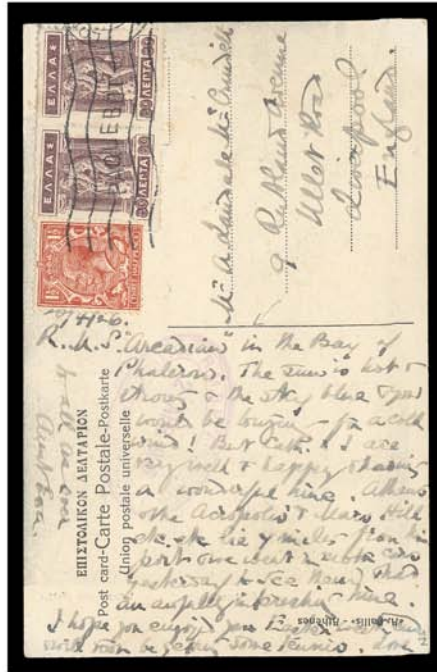 ΕΛΛΑΣ
30 ΛΕΠΤΑ 30
ΕΛΛΑΣ
30 ΛΕΠΤΑ 30
ΕΠΙΣΤΟΛΙΚΟΝ ΔΕΛΤΑΡΙΟΝ
Post card-Carte Postale-Postkarte
Union postale universelle
A. Pallis - Athènes
Mr A
9 Rutland Avenue
Ullet Road
Liverpool
England.
R.M.S. "Arcadian" in the Bay of
Phaleron. The sun is hot &
strong & the sky blue & you
would be longing for a cold
wind! But & I are
very well & happy & having
a wonderful time. Athens
& the Acropolis & Mars Hill
etc. etc. lie 4 miles from the
port & we went in motor cars
yesterday to see them & had
an awfully interesting time.
I hope you enjoyed your Easter
will soon be getting some tennis. Love
to all at home